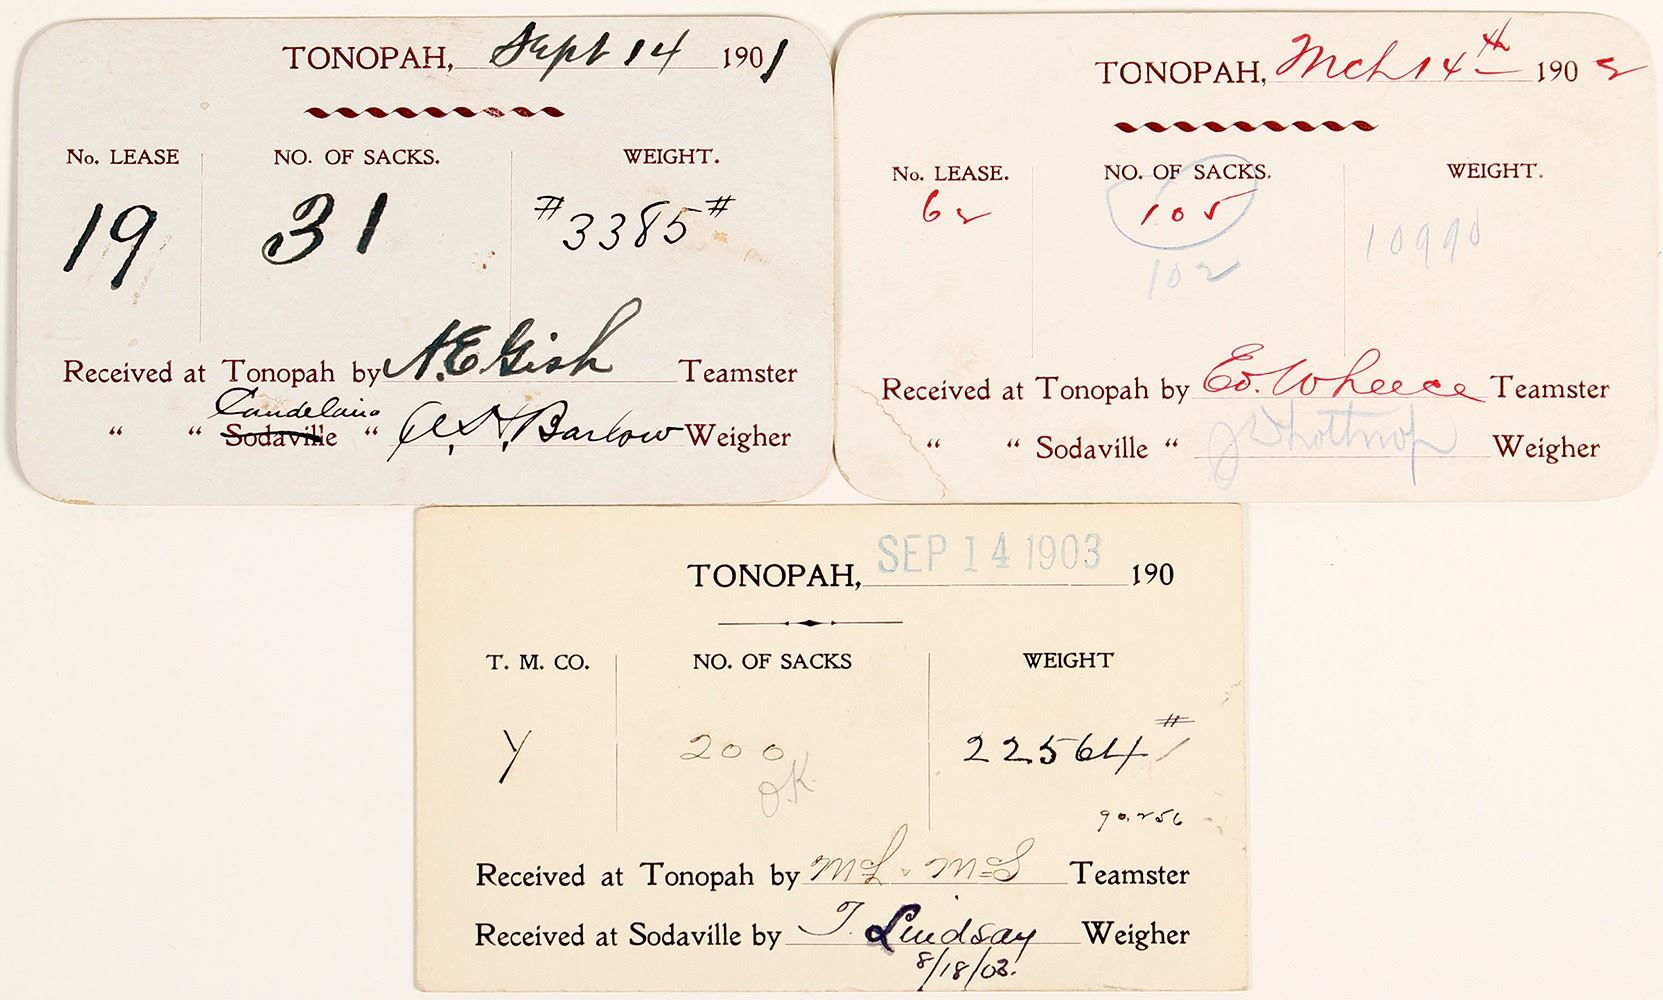 TONOPAH, Sept 14 1901
No. LEASE NO. OF SACKS. WEIGHT.
19 31 #3385#
Received at Tonopah by N.E. Gish Teamster
Candelaria
" " Sodaville " A. H. Barlow Weigher
TONOPAH, Mch 14th 1902
No. LEASE. NO. OF SACKS. WEIGHT.
62 105 10990
102
Received at Tonopah by Ed. Teamster
" " Sodaville " Weigher
TONOPAH, SEP 14 1903 190
T. M. CO. NO. OF SACKS WEIGHT
Y 200 22564#
OK
90.256
Received at Tonopah by Teamster
Received at Sodaville by T. Lindsay Weigher
8/18/03.